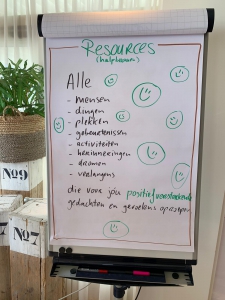 Resources
(hulpbronnen)
Alle
- mensen
- dingen
- plekken
- gebeurtenissen
- activiteiten
- herinneringen
- dromen
- verlangens
die voor jou positief voelende
gedachten en gevoelens oproepen
Nº9
Nº7